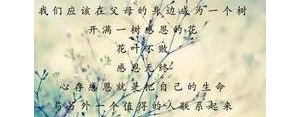 我们应该在父母的身边成为一个树
开满一树感恩的花
花叶不败
感恩无终
心存感恩就是把自己的生命
与另外一个值得的人联系起来